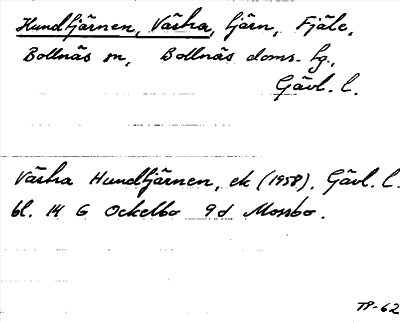 Hundtjärnen, Västra, tjärn, Fjäle,
Bollnäs sn, Bollnäs doms. fg.,
Gävl. l.
Västra Hundtjärnen, ek (1958). Gävl. l.
bl. 14 G Ockelbo 9d Mossbo.
TP-62